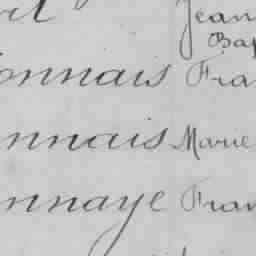 Jean
Bap
onnais Fra
nnais Marie
nnaye Fran